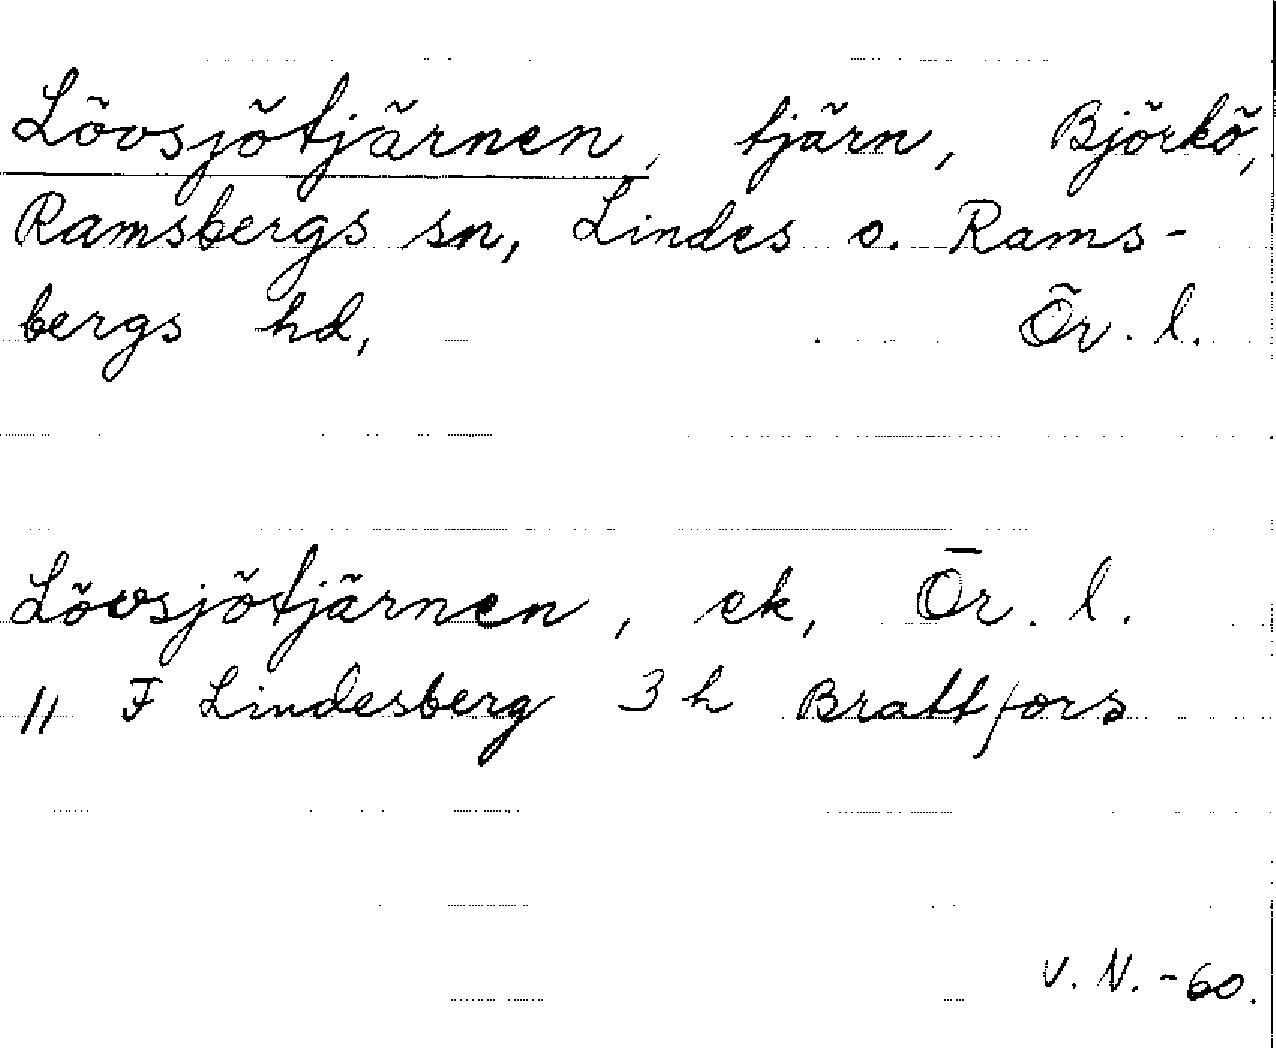 Lövsjötjärnen, tjärn, Björkö,
Ramsbergs sn, Lindes o. Rams-
bergs hd, Ör. l.
Lövsjötjärnen, ek, Ör. l.
11 F Lindesberg 3 h Brattfors
V. N. -60.